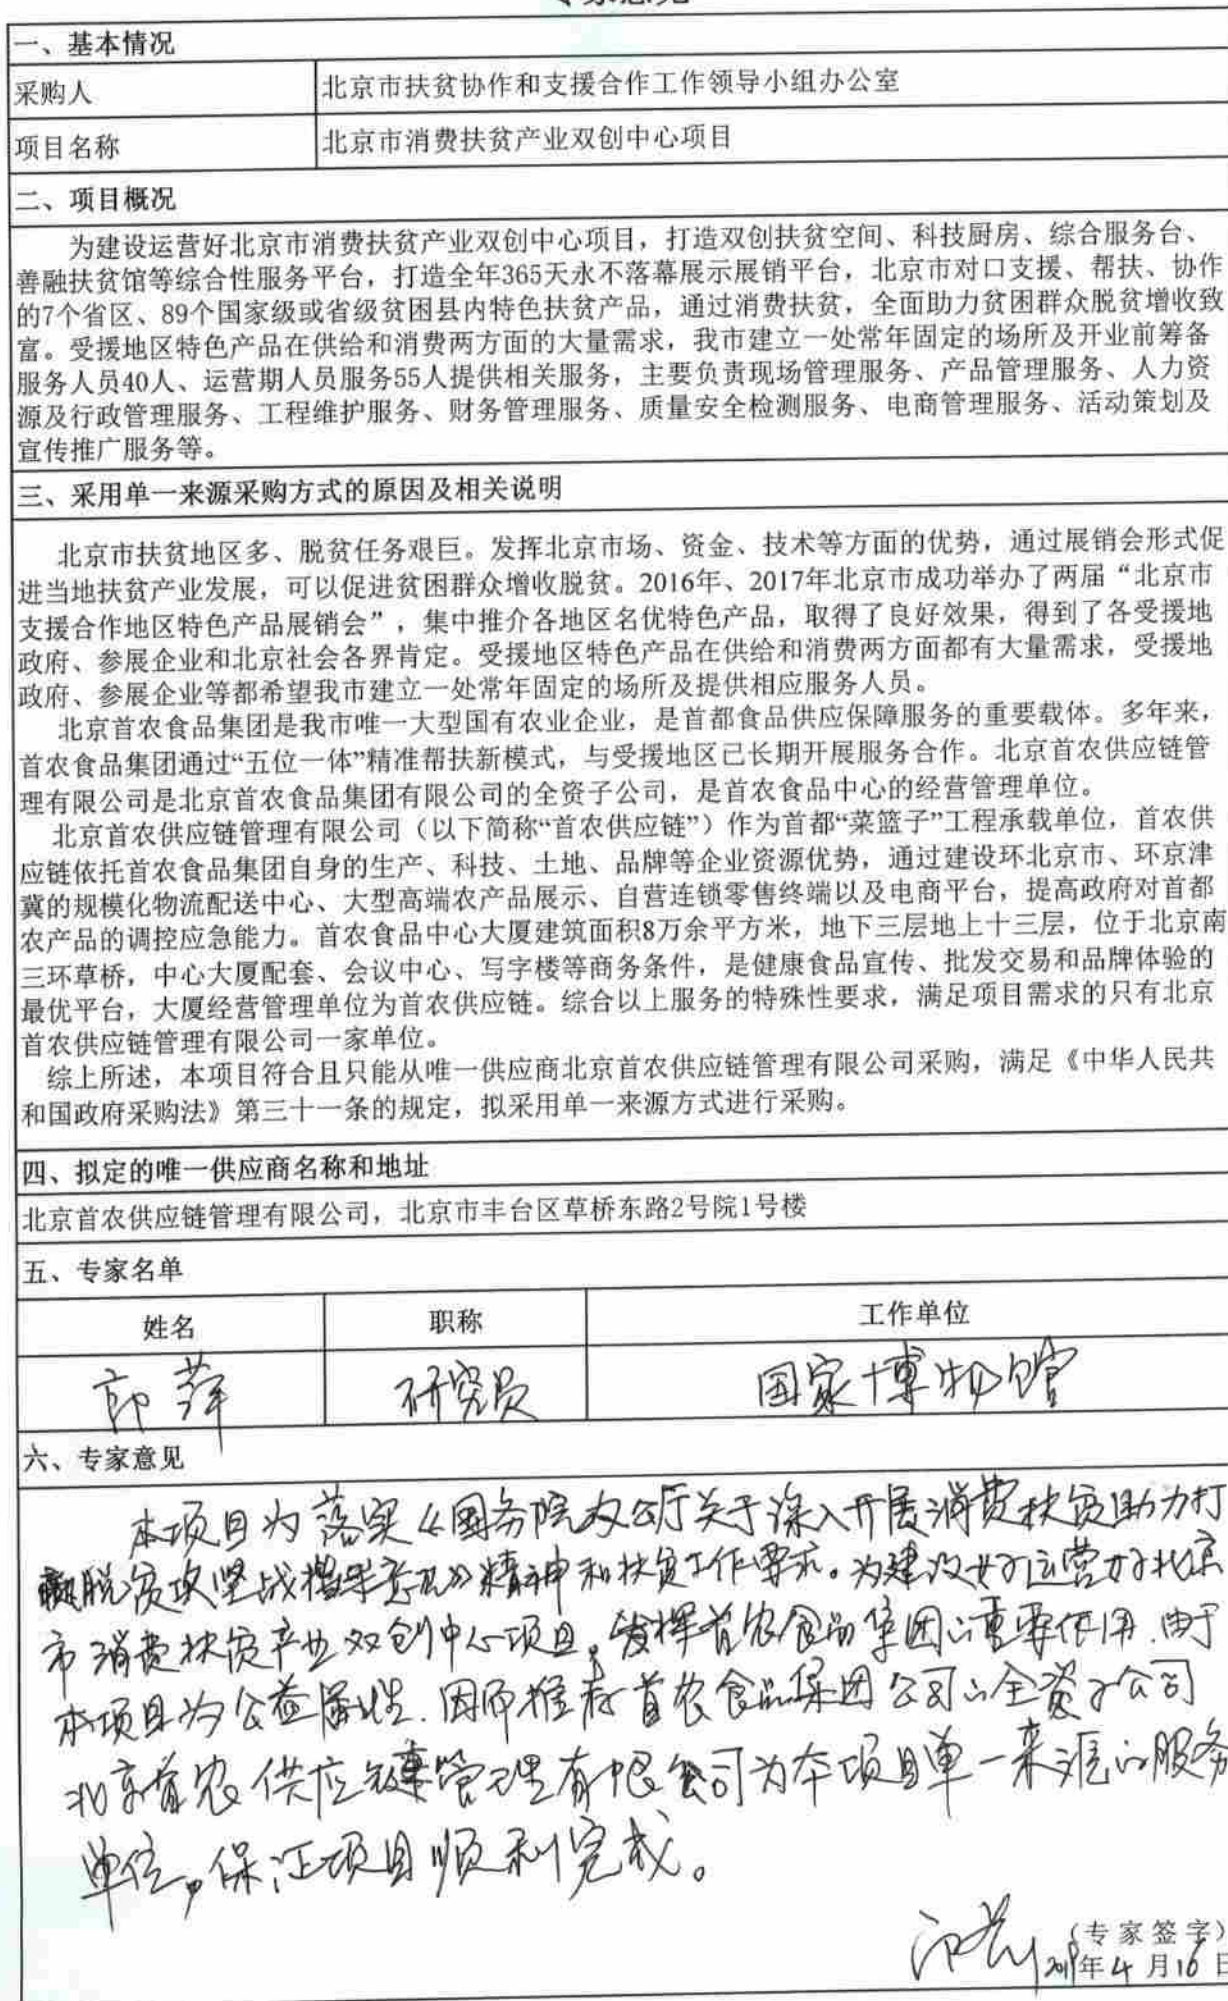 一、基本情况
采购人 北京市扶贫协作和支援合作工作领导小组办公室
项目名称 北京市消费扶贫产业双创中心项目
二、项目概况
为建设运营好北京市消费扶贫产业双创中心项目，打造双创扶贫空间、科技厨房、综合服务台、
善融扶贫馆等综合性服务平台，打造全年365天永不落幕展示展销平台，北京市对口支援、帮扶、协作
的7个省区、89个国家级或省级贫困县内特色扶贫产品，通过消费扶贫，全面助力贫困群众脱贫增收致
富。受援地区特色产品在供给和消费两方面的大量需求，我市建立一处常年固定的场所及开业前筹备
服务人员40人、运营期人员服务55人提供相关服务，主要负责现场管理服务、产品管理服务、人力资
源及行政管理服务、工程维护服务、财务管理服务、质量安全检测服务、电商管理服务、活动策划及
宣传推广服务等。
三、采用单一来源采购方式的原因及相关说明
北京市扶贫地区多、脱贫任务艰巨。发挥北京市场、资金、技术等方面的优势，通过展销会形式促
进当地扶贫产业发展，可以促进贫困群众增收脱贫。2016年、2017年北京市成功举办了两届“北京市
支援合作地区特色产品展销会”，集中推介各地区名优特色产品，取得了良好效果，得到了各受援地
政府、参展企业和北京社会各界肯定。受援地区特色产品在供给和消费两方面都有大量需求，受援地
政府、参展企业等都希望我市建立一处常年固定的场所及提供相应服务人员。
北京首农食品集团是我市唯一大型国有农业企业，是首都食品供应保障服务的重要载体。多年来，
首农食品集团通过“五位一体”精准帮扶新模式，与受援地区已长期开展服务合作。北京首农供应链管
理有限公司是北京首农食品集团有限公司的全资子公司，是首农食品中心的经营管理单位。
北京首农供应链管理有限公司（以下简称“首农供应链”）作为首都“菜篮子”工程承载单位，首农供
应链依托首农食品集团自身的生产、科技、土地、品牌等企业资源优势，通过建设环北京市、环京津
冀的规模化物流配送中心、大型高端农产品展示、自营连锁零售终端以及电商平台，提高政府对首都
农产品的调控应急能力。首农食品中心大厦建筑面积8万余平方米，地下三层地上十三层，位于北京南
三环草桥，中心大厦配套、会议中心、写字楼等商务条件，是健康食品宣传、批发交易和品牌体验的
最优平台，大厦经营管理单位为首农供应链。综合以上服务的特殊性要求，满足项目需求的只有北京
首农供应链管理有限公司一家单位。
综上所述，本项目符合且只能从唯一供应商北京首农供应链管理有限公司采购，满足《中华人民共
和国政府采购法》第三十一条的规定，拟采用单一来源方式进行采购。
四、拟定的唯一供应商名称和地址
北京首农供应链管理有限公司，北京市丰台区草桥东路2号院1号楼
五、专家名单
姓名 职称 工作单位
萍 研究员 国家博物馆
六、专家意见
本项目为落实《国务院办公厅关于深入开展消费扶贫助力打
赢脱贫攻坚战指导意见》精神和扶贫工作要求。为建设好运营好北京
市消费扶贫产业双创中心项目，发挥首农食品集团的重要作用.由于
本项目为公益属性.因而推荐首农食品集团公司的全资子公司
北京首农供应链管理有限公司为本项目单一来源的服务
单位，保证项目顺利完成。
（专家签字）
2019年4月16日